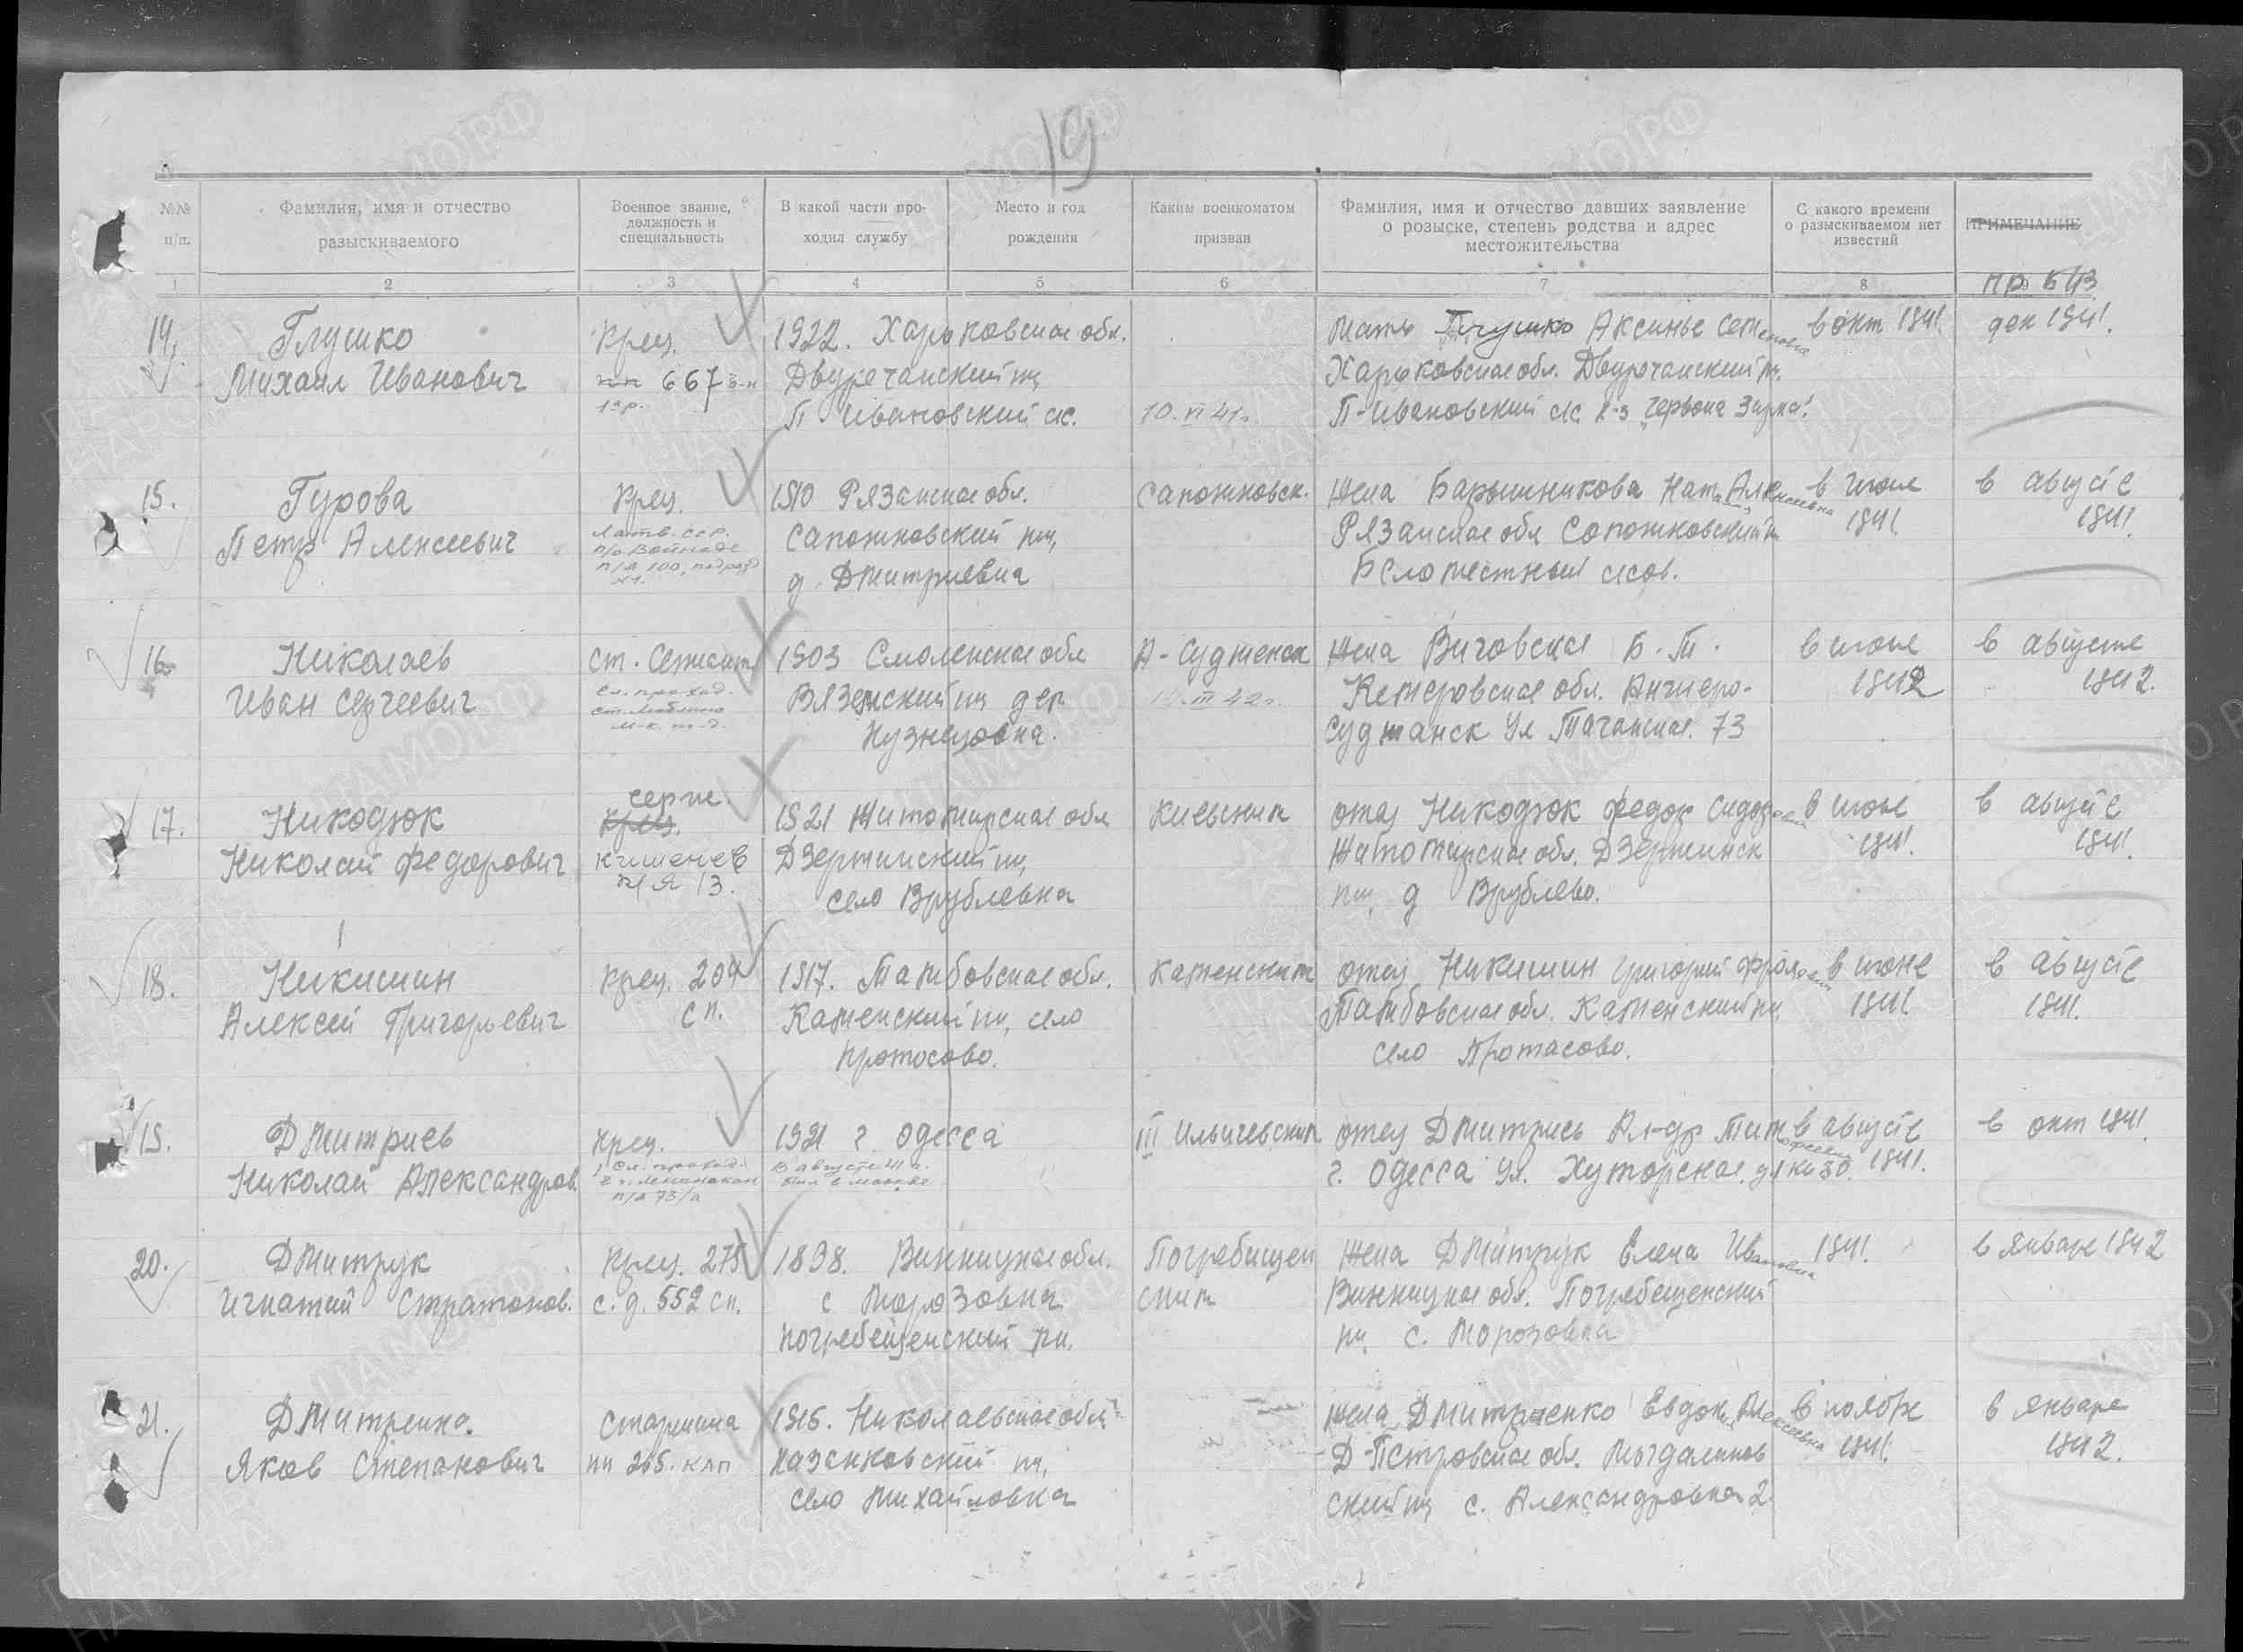 19
№№ п/п.
Фамилия, имя и отчество разыскиваемого
Военное звание, должность и специальность
В какой части проходил службу
Место и год рождения
Каким военкоматом призван
Фамилия, имя и отчество давших заявление о розыске, степень родства и адрес местожительства
С какого времени о разыскиваемом нет известий
ПРИМЕЧАНИЕ
1 2 3 4 5 6 7 8
14. Глушко Крец. 1922. Харьковская обл. Мать Глушко Аксинья Семеновна в окт 1941. дек 1941.
Михаил Иванович 667 Двуречанский рн, Харьковская обл. Двуречанский рн.
1 р. П Ивановский с/с. 10.VI 41г. П-Ивановский с/с. к-з
15. Гурова Крец. 1910 Рязанская обл. Сапожковск. жена Барышникова Ната Алексеевна в июле в августе
Петр Алексеевич Латв. ССР. Сапожковский рн, Рязанская обл Сопожковский рн 1941. 1941.
п/о Вайноде
п/я 100, подразд д. Дмитриевка
16. Николаев Ст. Сержант 1903 Смоленская обл А-Судженск жена Виговская Б. Т. в июле в августе
Иван Сергеевич ст. Люблино Вяземский рн дер III 42г. Кемеровская обл. Анжеро- 1942 1942.
м-к. ж-д. Кузнецовка. Суджанск ул Таганская. 73
17. Никодюк серж. Крец. 1921 Житомирская обл Киевским отец Никодюк Федор Сидорович в июле в августе
Николай Федорович Кишенев Дзержинский рн, Житомирская обл. Дзержинск 1941. 1941.
п/я 13. село Врублевка рн, д Врублево.
18. Никишин Крец. 204 1917. Тамбовская обл. Каменским отец Никишин Григорий Фролович в июне в августе
Алексей Григорьевич сп. Каменский рн, село Тамбовская обл. Каменский рн, 1941. 1941.
Протосово. село Протасово.
19. Дмитриев Крец. 1921 г. Одесса III Ильичевским отец Дмитриев Ал-др в августе в окт 1941.
Николай Александров. Сл. проход. В августе 41 г. г. Одесса ул. Хуторская. д № 30. 1941.
г. Ленинакан был в Москве
п/я 73/а
20. Дмитрук Крец. 275 1898. Винницкая обл. Погребищен жена Дмитрук Елена Ивановна 1941. в январе 1942
Игнатий Стратонов. с.д. 552 сп. с Морозовка ским Винницкая обл. Погребещенский
погребещенский рн. рн, с. Морозовка
21. Дмитренко. Старшина 1915. Николаевская обл. жена Дмитренко Евдокия Алексеевна в ноябре в январе
Яков Степанович пп 265. кап Казанковский рн, Д-Петровская обл. Могдалинов 1941. 1942.
село Михайловка ский рн, с. Александровка 2.